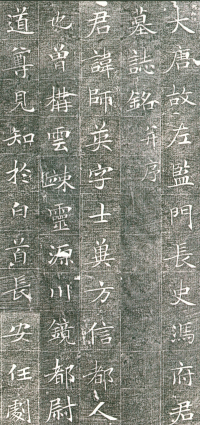 大唐故左監門長史馮府君
墓誌銘并序
君諱師英字士兾方信都人
也曽構雲竦靈源川鏡都尉
道尊見知於白首長安任劇